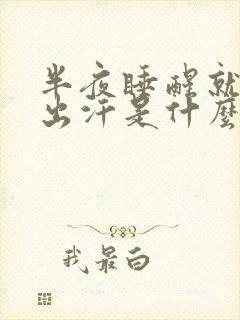 半夜睡醒就
出汗是什麼
我最白